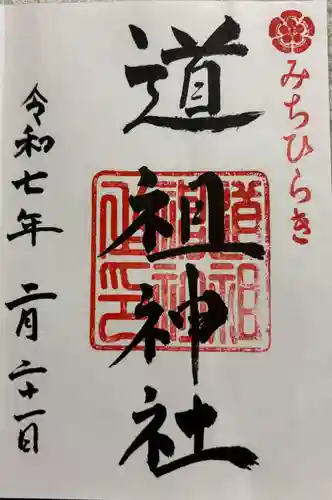 みちひらき
道祖神社
令和七年 二月二十一日